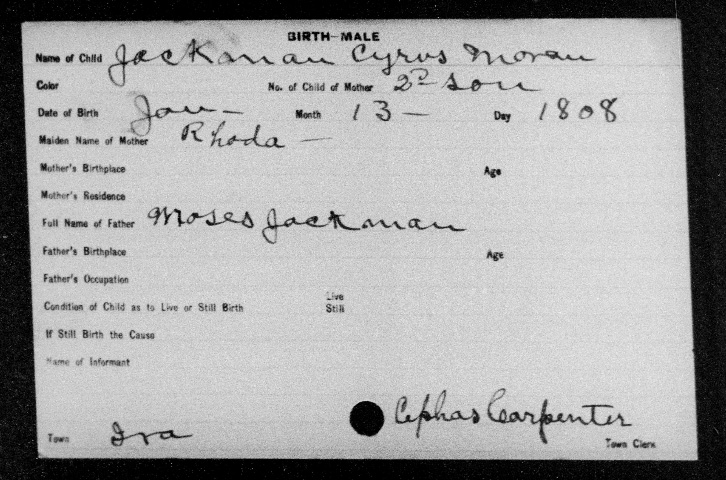 BIRTH—MALE
Name of Child Jackman Cyrus Moran
Color No. of Child of Mother 2d son
Date of Birth Jan— Month 13— Day 1808
Maiden Name of Mother Rhoda —
Mother's Birthplace Age
Mother's Residence
Full Name of Father Moses Jackman
Father's Birthplace Age
Father's Occupation
Condition of Child as to Live or Still Birth Live
Still
If Still Birth the Cause
Name of Informant
Cephas Carpenter
Town Ira Town Clerk